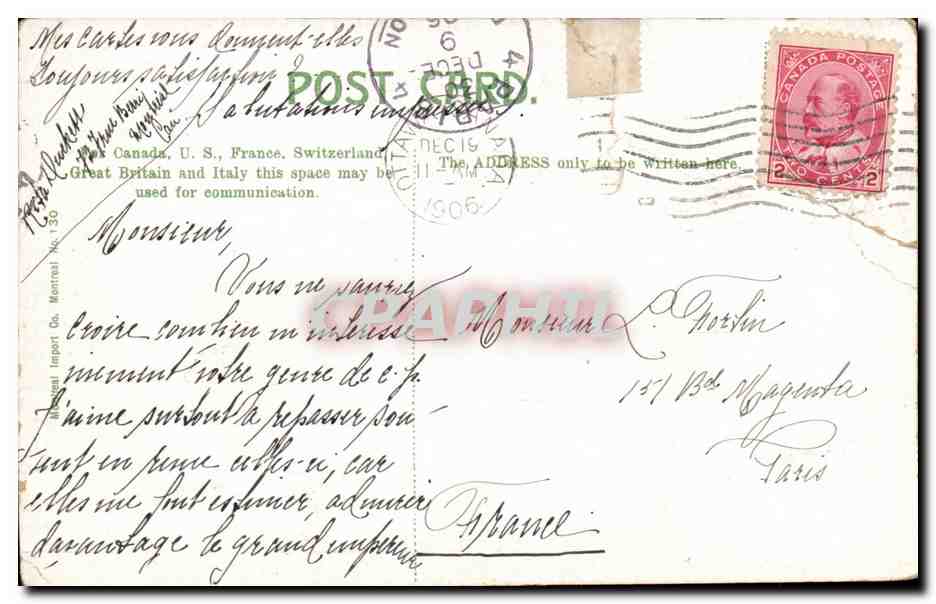 Mes cartes vous donnent-elles
toujours satisfaction?
Salutations
POST CARD.
For Canada, U. S., France, Switzerland,
Great Britain and Italy this space may be
used for communication.
The ADDRESS only to be written here.
Montreal Import Co. Montreal No. 130
OTTAWA CANADA
DEC 19
11 - AM
1906
PARIS
DECE
CANADA POSTAGE
2 TWO CENTS 2
Monsieur,
Vous ne sauriez
croire combien m'intéresse
mement votre genre de c. p.
J'aime surtout à repasser sou-
vent en revue celles-ci, car
elles me font estimer, admirer
davantage le grand empereur
CPAPHIL
Monsieur L. Fortin
151 Bd Magenta
Paris
France